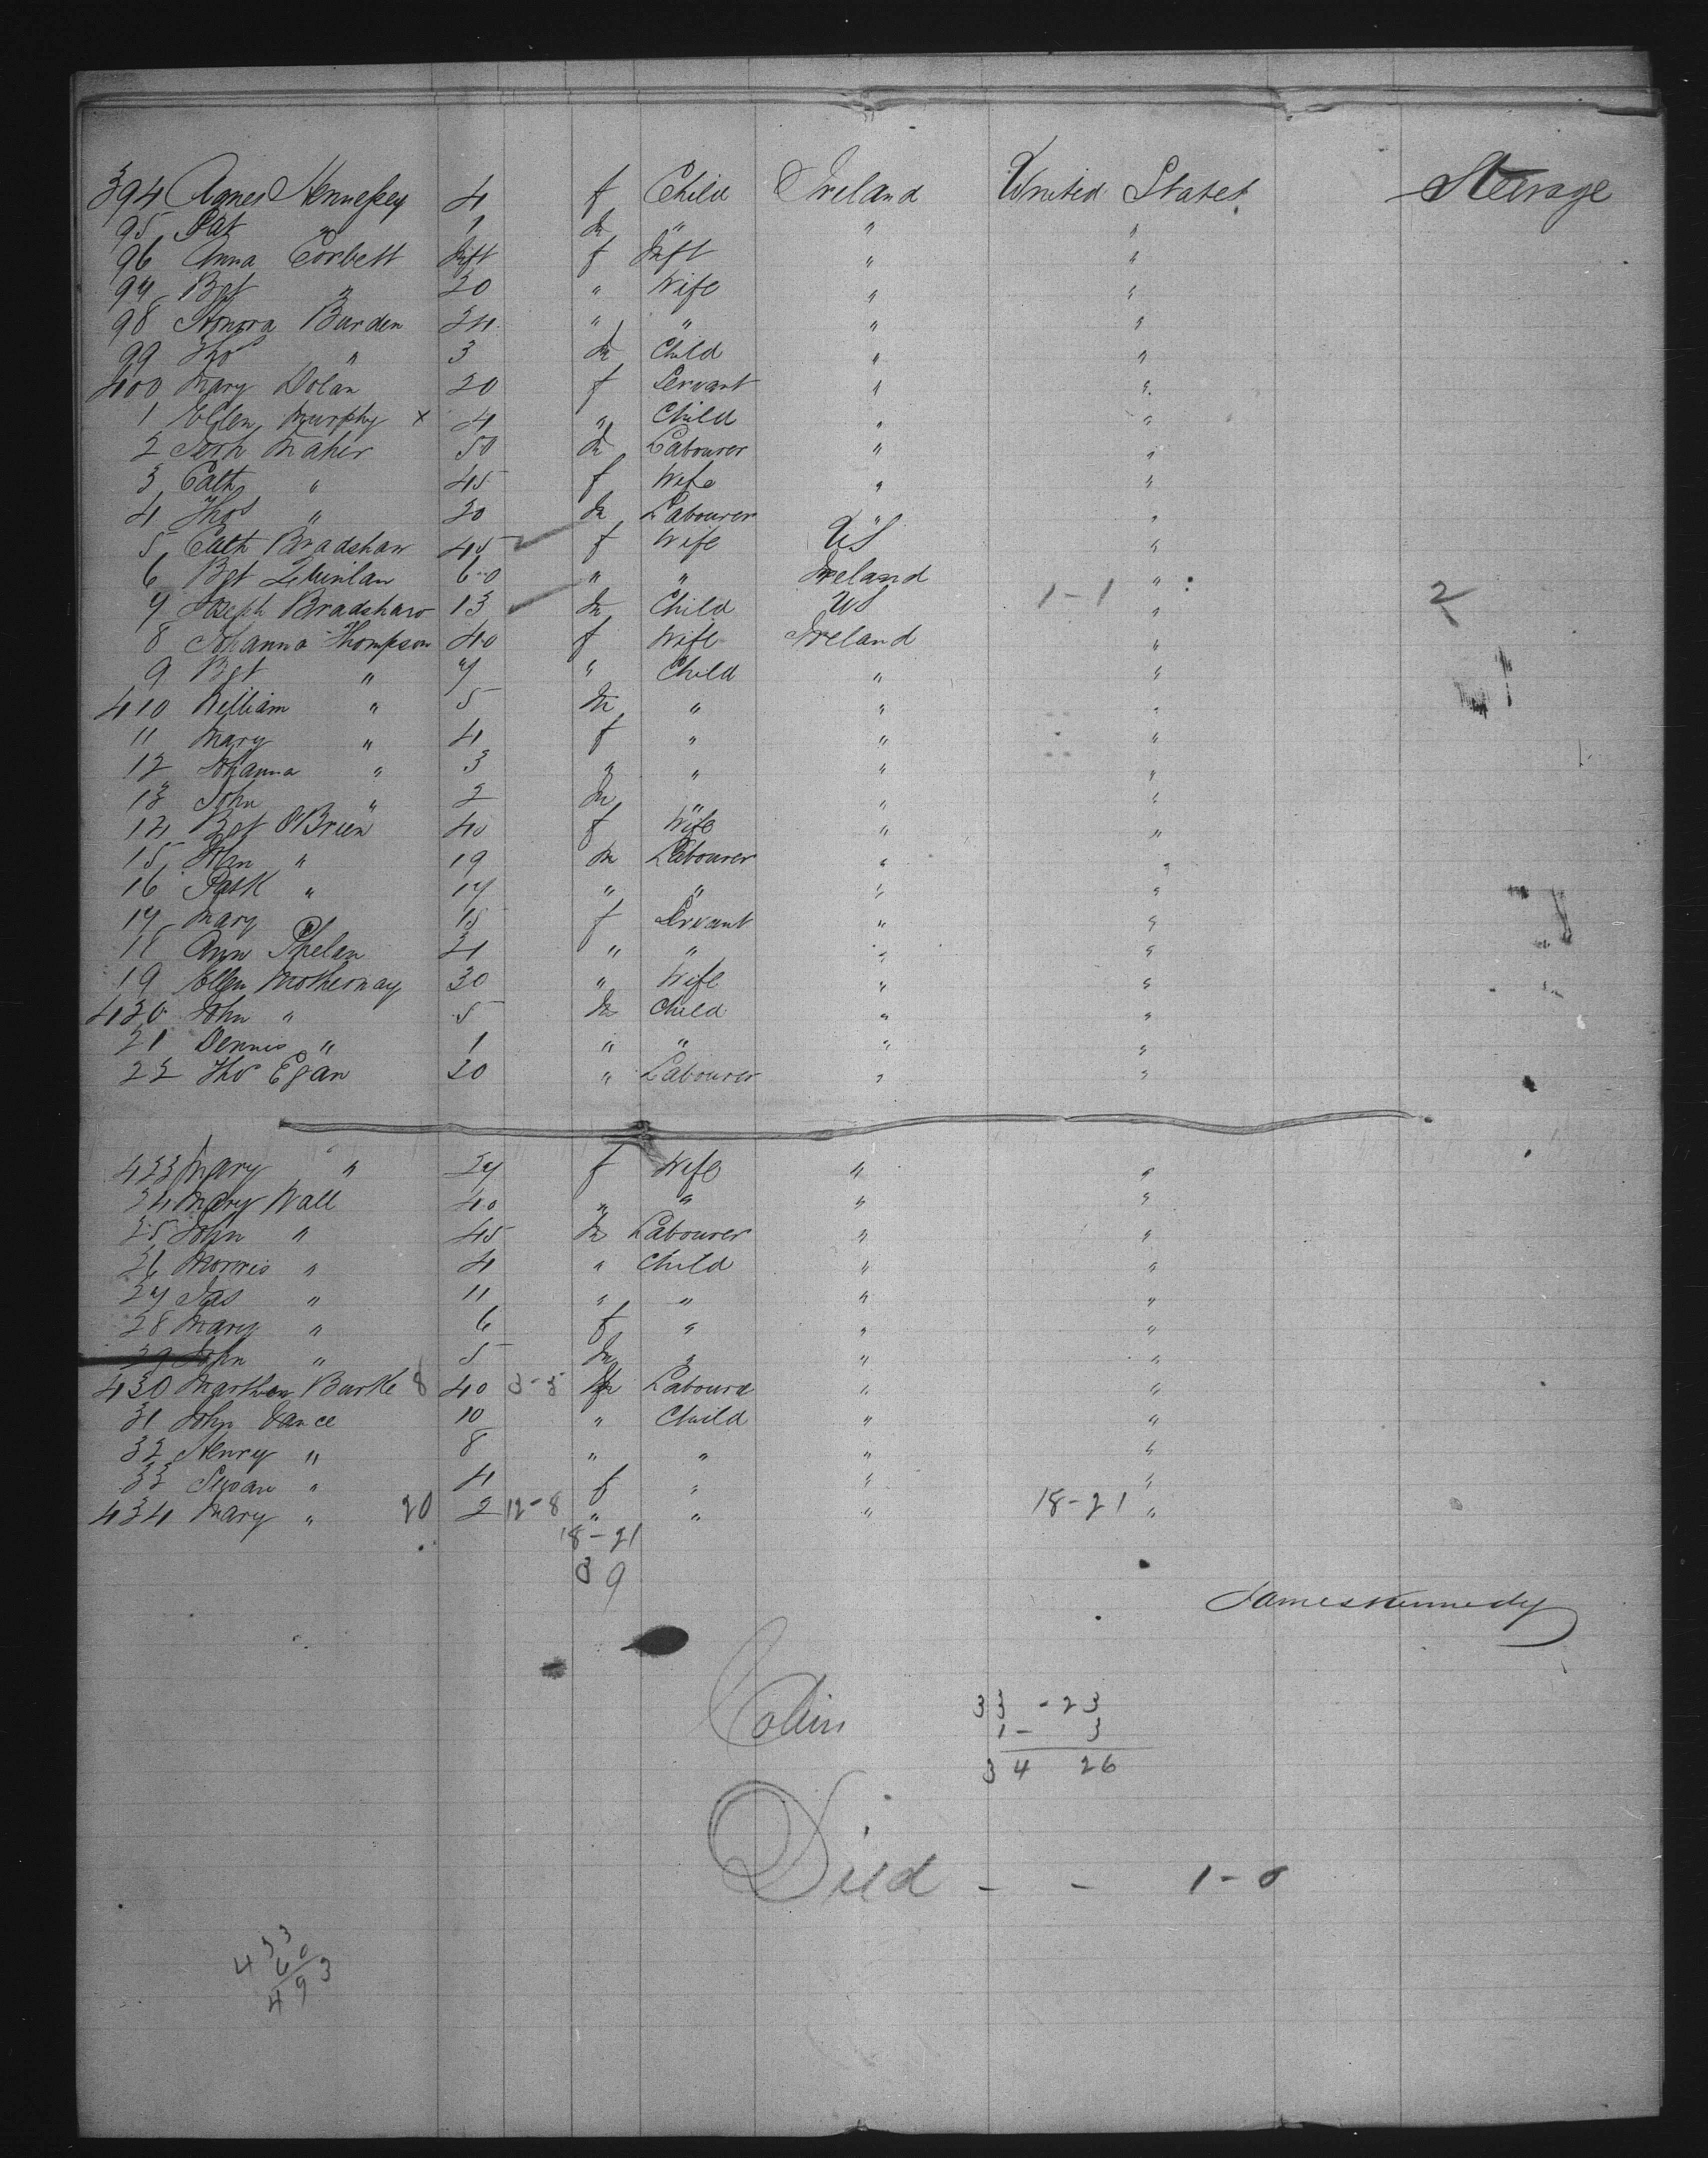 394 Agnes Hennessey 4 f Child Ireland United States Steerage
95 Pat " 1 m " " "
96 Anna Corbett Inft f Inft " "
97 Bgt " 20 " Wife " "
98 Honora Burden 24 " " " "
99 Thos " 3 m Child " "
400 Mary Dolan 20 f Servant " "
1 Ellen Murphy x 4 " Child " "
2 Maher 50 m Labourer " "
3 Cath " 45 f Wife " "
4 Thos " 20 m Labourer " "
5 Cath Bradshaw 45 f Wife US "
6 Bgt Quinlan 60 " " Ireland "
7 Joseph Bradshaw 13 m Child US 1-1 " 2
8 Johanna Thompson 40 f Wife Ireland "
9 Bgt " 7 " Child " "
410 William " 5 m " " "
11 Mary " 4 f " " "
12 Johanna " 3 " " " "
13 John " 2 m " " "
14 Bgt O'Brien 40 f Wife " "
15 John " 19 m Labourer " "
16 Patk " 17 " " " "
17 Mary 15 f Servant " "
18 Ann Phelan 21 " " " "
19 Ellen Motherway 30 " Wife " "
420 John " 5 m Child " "
21 Dennis " 1 " " " "
22 Thos Egan 20 " Labourer " "
423 Mary " 27 f Wife " "
24 Mary Wall 40 " " " "
25 John " 45 m Labourer " "
26 Morris " 4 " Child " "
27 Jas " 11 " " " "
28 Mary " 6 f " " "
29 John " 5 m " " "
430 Burke 8 40 3-5 m Labourer " "
31 John Dance 10 " Child " "
32 Henry " 8 " " " "
33 Susan " 4 f " " "
434 Mary " 20 2 12-8 " " " 18-21 "
18-21
39
James Kennedy
33 - 23
1 - 3
34 26
Died - - 1-0
433
60
493